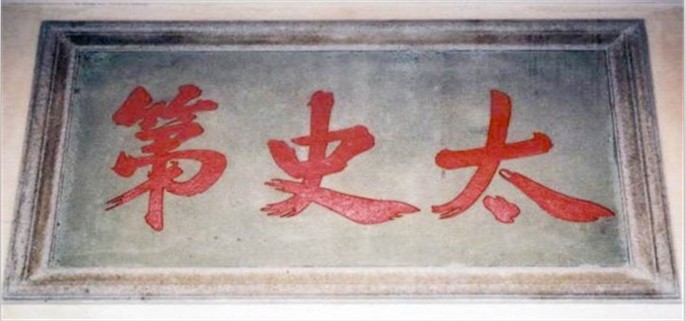 太史第